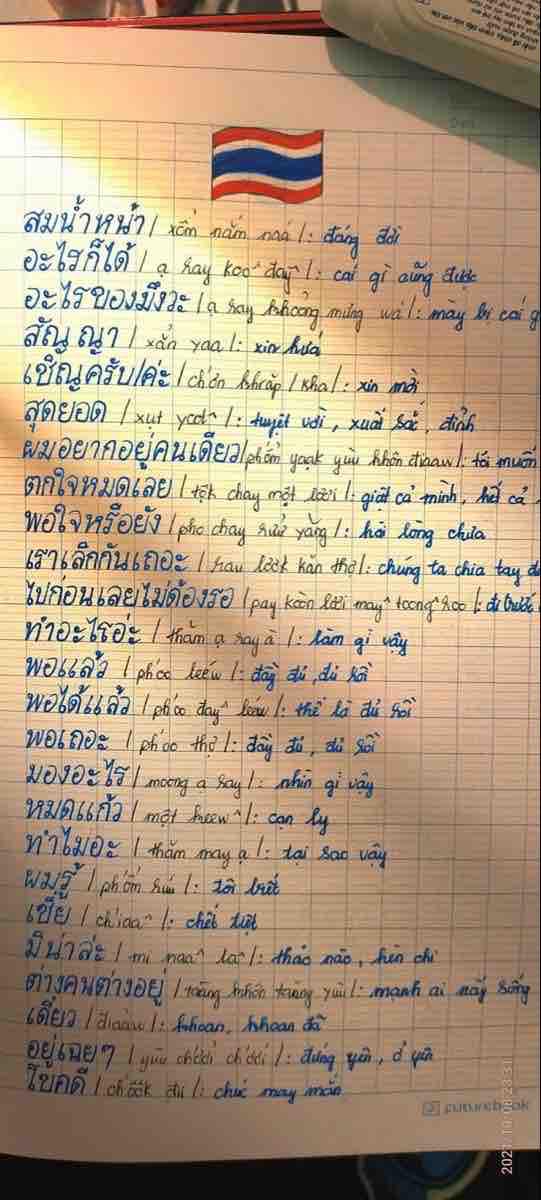 สมน้ำหน้า / xổm nắm naá /: đáng đời
อะไรก็ได้ / ạ ray koo^ đay^ /: cái gì cũng được
อะไรของมึงวะ / ạ ray khoỏng mưng wá /: mày bị cái g
สัญญา / xẳn yaa /: xin hứa
เชิญครับ/ค่ะ / chơn khráp / kha /: xin mời
สุดยอด / xụt yoot^ /: tuyệt vời, xuất sắc, đỉnh
ผมอยากอยู่คนเดียว / phổm yaạk yùu khôn điaaw /: tôi muốn
ตกใจหมดเลย / tộk chay một lơi /: giật cả mình, hết cả
พอใจหรือยัง / pho chay rứ yăng /: hài lòng chưa
เราเลิกกันเถอะ / rau lơơk kăn thợ /: chúng ta chia tay đ
ไปก่อนเลยไม่ต้องรอ / pay koòn lơi may^ toong^ roo /: đi trước
ทำอะไรอ่ะ / thăm ạ ray à /: làm gì vậy
พอแล้ว / phoo leéw /: đầy đủ, đủ rồi
พอได้แล้ว / phoo đay^ leéw /: thế là đủ rồi
พอเถอะ / phoo thợ /: đầy đủ, đủ rồi
มองอะไร / moong ạ ray /: nhìn gì vậy
หมดแก้ว / một keew^ /: cạn ly
ทำไมอะ / thăm may ạ /: tại sao vậy
ผมรู้ / phổm rúu /: tôi biết
เชี่ย / chiaa^ /: chết tiệt
มิน่าล่ะ / mí naa^ la^ /: thảo nào, hèn chi
ต่างคนต่างอยู่ / taàng khôn taàng yùu /: mạnh ai nấy sống
เดี๋ยว / điaaw /: khoan, khoan đã
อยู่เฉยๆ / yùu chởi chởi /: đứng yên, ở yên
โชคดี / chôôk đii /: chúc may mắn
futurebook